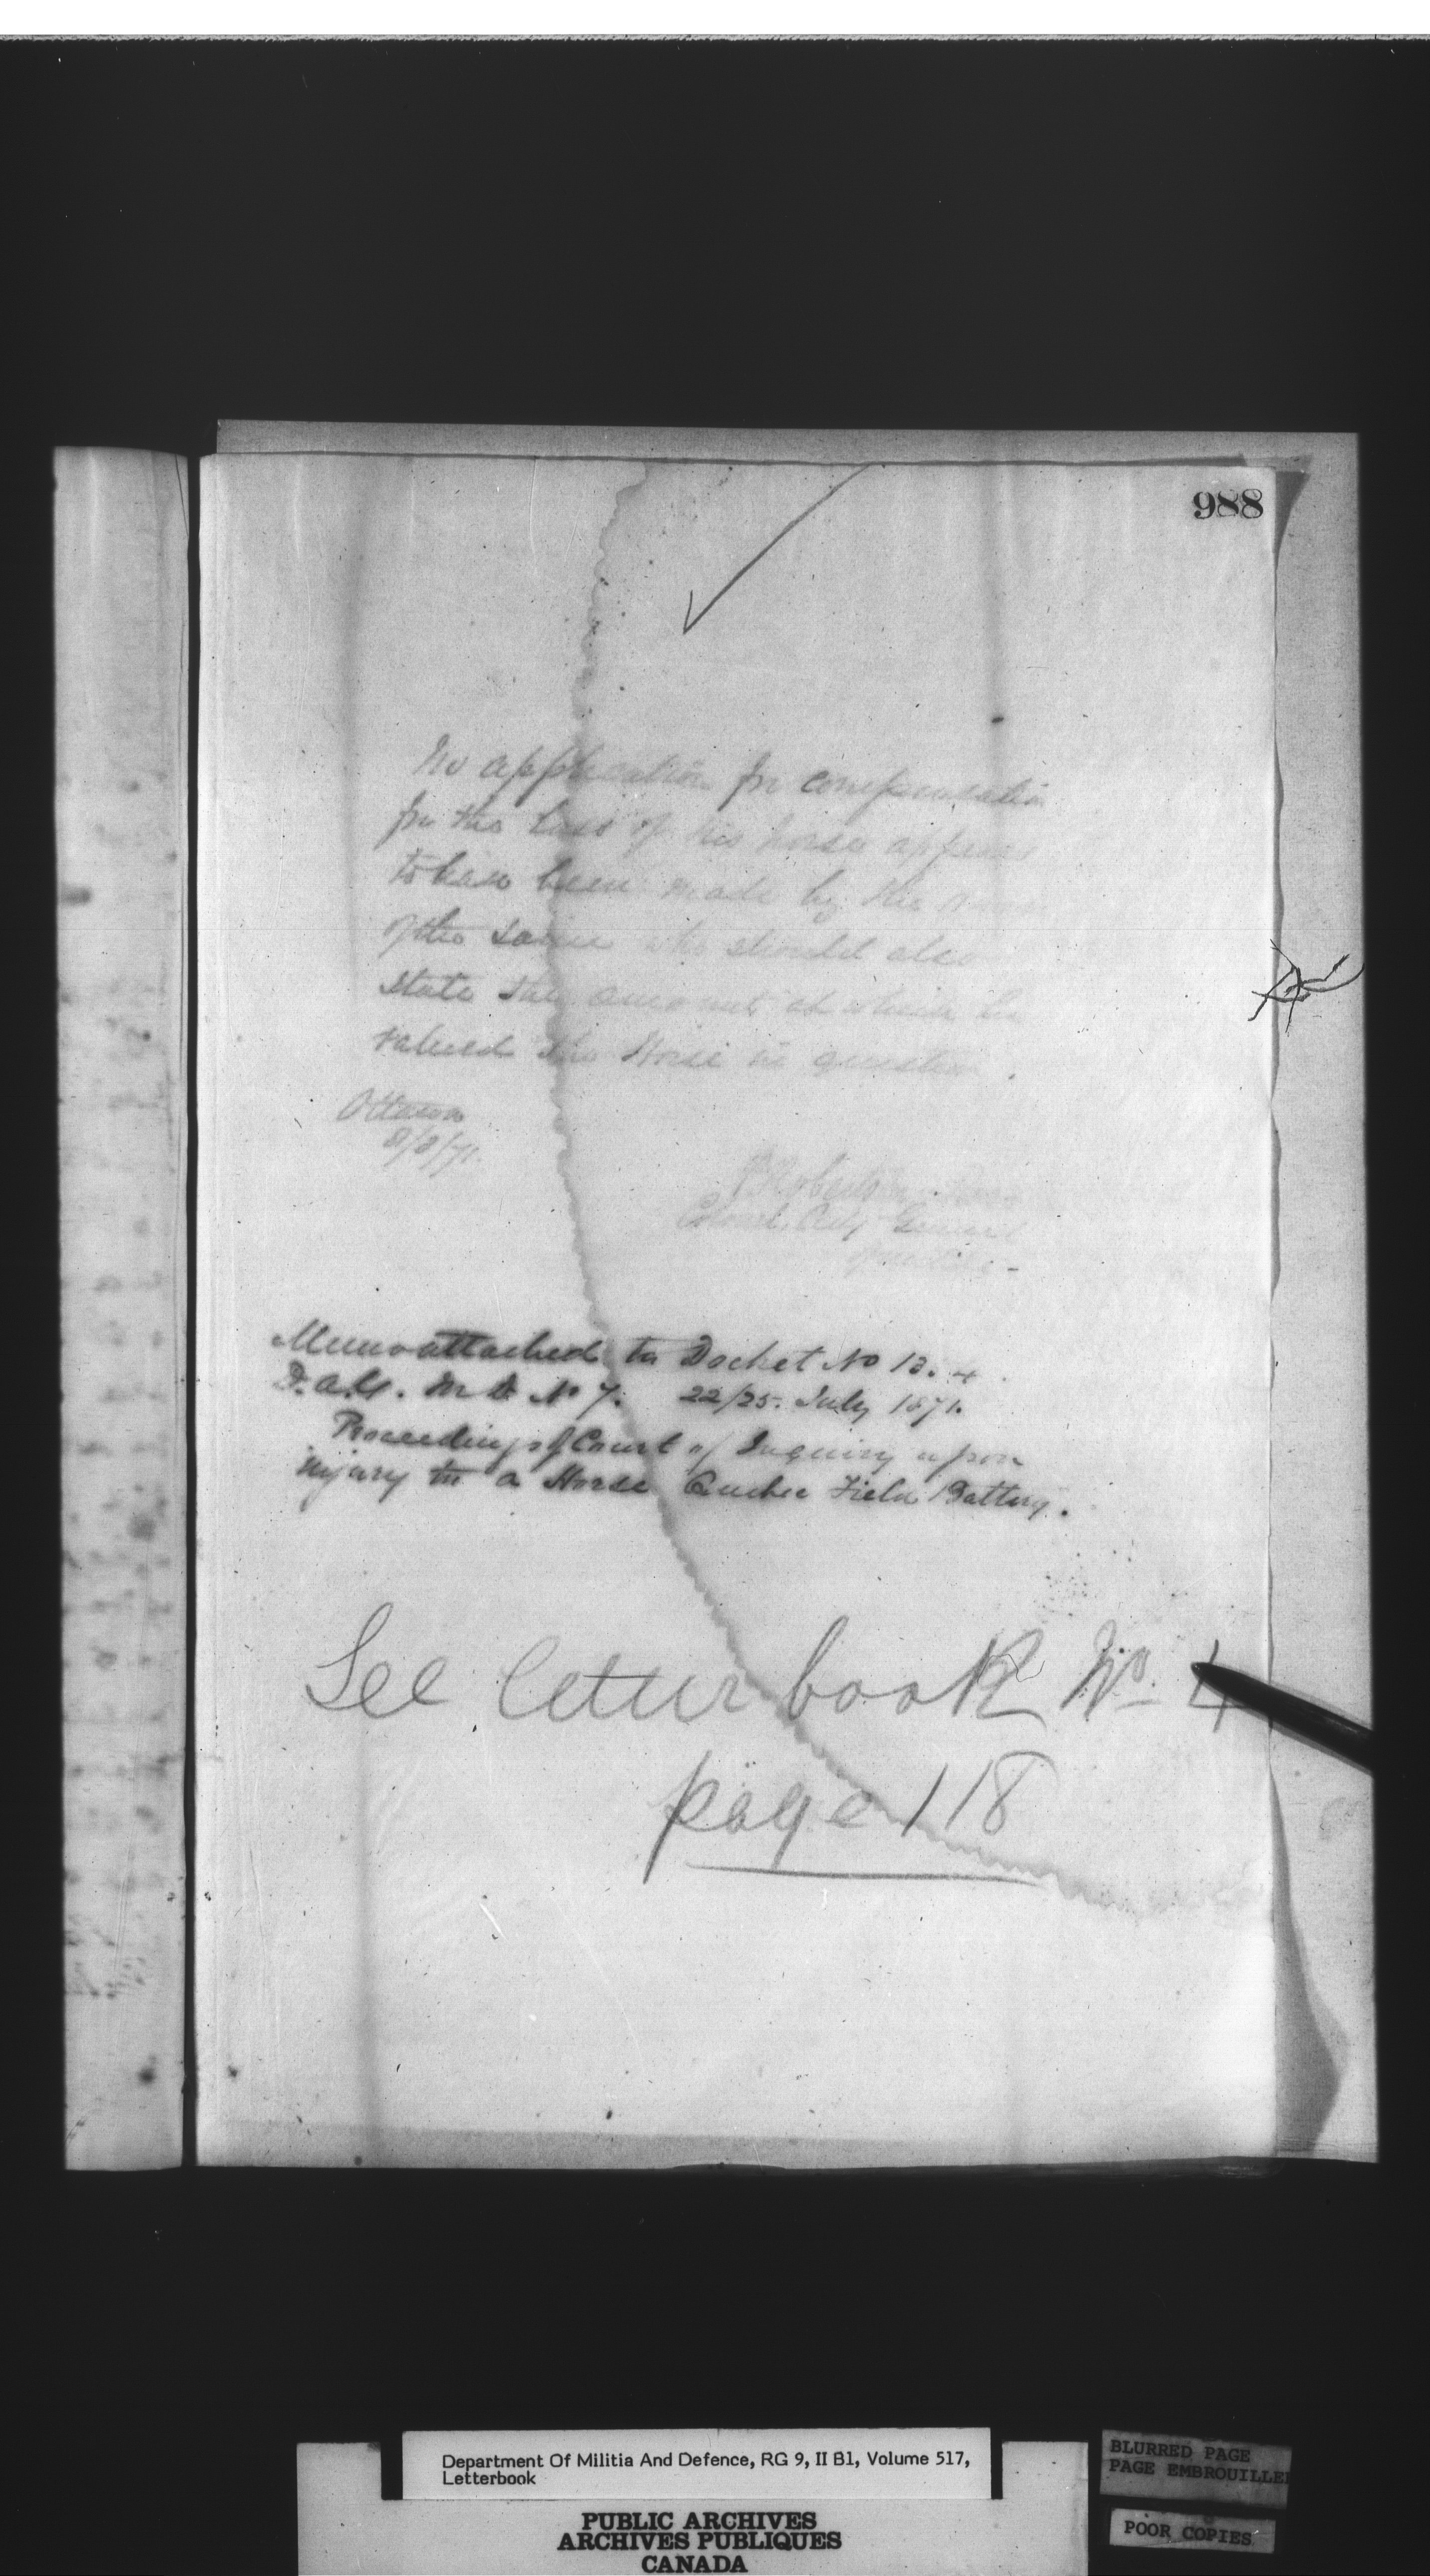 988
No application for compensation
for the loss of his horse appears
to have been made by the owner
of the same who should also
state the amount at which he
valued the Horse in question.
Ottawa
8/71.
P. Robertson
Colonel, Adj General
of Militia -
Memo attached to Docket No 13.
D.A.G. M D No 7. 22/25. July 1871.
Proceedings of Court of Inquiry upon
injury to a Horse Quebec Field Battery.
See letter book No. 4
page 118
Department Of Militia And Defence, RG 9, II B1, Volume 517,
Letterbook
PUBLIC ARCHIVES
ARCHIVES PUBLIQUES
CANADA
BLURRED PAGE
PAGE EMBROUILLE
POOR COPIES